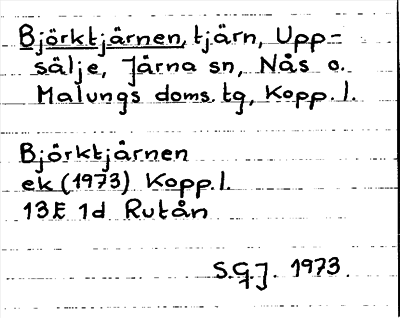 Björktjärnen, tjärn, Upp-
sälje, Järna sn, Nås o.
Malungs doms. tg, Kopp. l.
Björktjärnen
ek (1973) Kopp. l.
13E 1d Rutån
S.G.J. 1973.